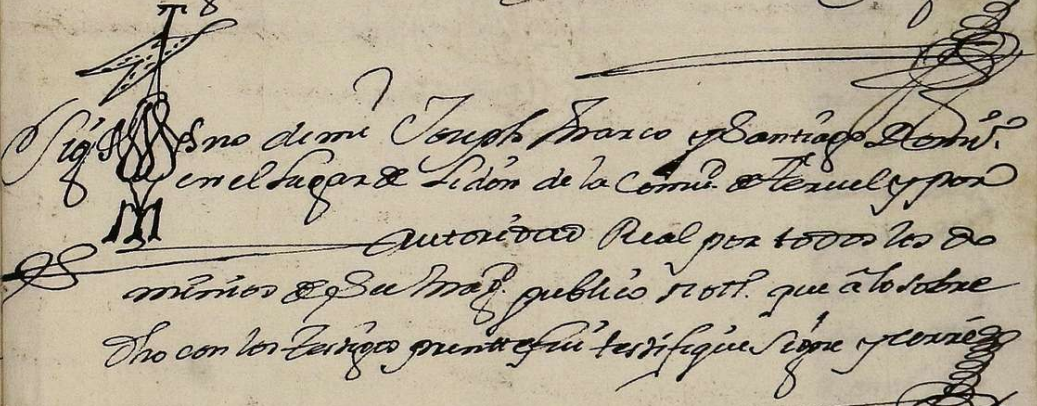 Sig no de mi Joseph Marco y Santiago Domi.º
en el Lugar de Lidon de la Comu.d de Teruel y por
autoridad Real por todos los do
minios de Su Mag.d publico Nott.o que a lo sobre
dho con los testigos pnte fui testifique signe y cerre